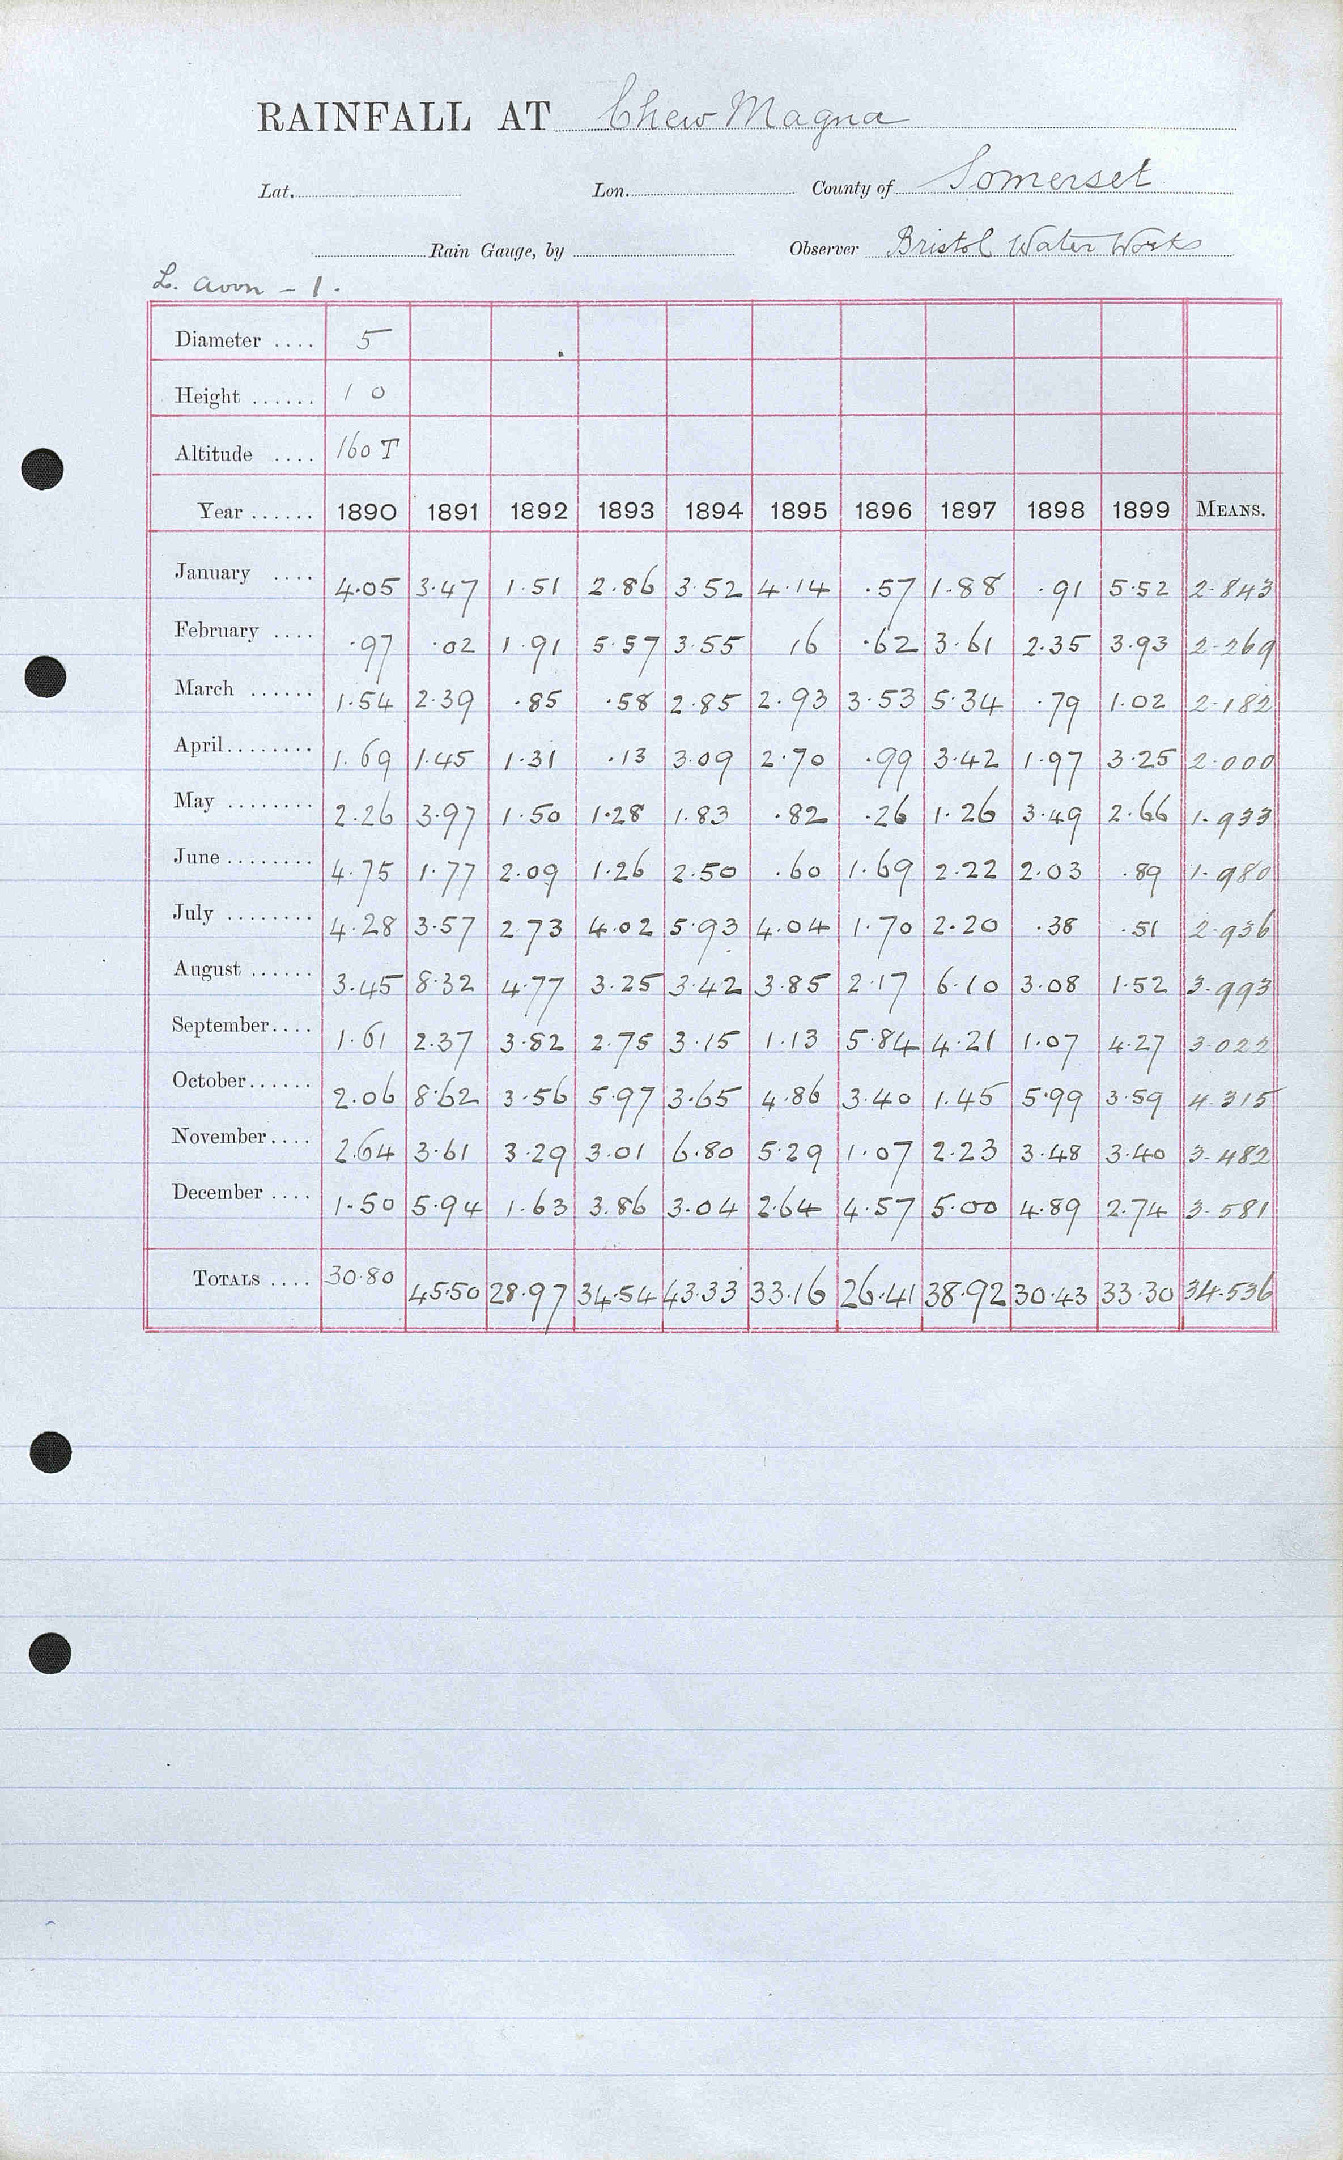 RAINFALL AT Chew Magna
Lat. Lon. County of Somerset
Rain Gauge, by Observer Bristol Water Works
L. Avon - 1.
Diameter .... 5
Height ...... 1 0
Altitude .... 160 T
Year ...... 1890 1891 1892 1893 1894 1895 1896 1897 1898 1899 MEANS.
January .... 4.05 3.47 1.51 2.86 3.52 4.14 .57 1.88 .91 5.52 2.843
February .... .97 .02 1.91 5.57 3.55 16 .62 3.61 2.35 3.93 2.269
March ...... 1.54 2.39 .85 .58 2.85 2.93 3.53 5.34 .79 1.02 2.182
April........ 1.69 1.45 1.31 .13 3.09 2.70 .99 3.42 1.97 3.25 2.000
May ........ 2.26 3.97 1.50 1.28 1.83 .82 .26 1.26 3.49 2.66 1.933
June ........ 4.75 1.77 2.09 1.26 2.50 .60 1.69 2.22 2.03 .89 1.980
July ........ 4.28 3.57 2.73 4.02 5.93 4.04 1.70 2.20 .38 .51 2.936
August ...... 3.45 8.32 4.77 3.25 3.42 3.85 2.17 6.10 3.08 1.52 3.993
September.... 1.61 2.37 3.82 2.75 3.15 1.13 5.84 4.21 1.07 4.27 3.022
October...... 2.06 8.62 3.56 5.97 3.65 4.86 3.40 1.45 5.99 3.59 4.315
November.... 2.64 3.61 3.29 3.01 6.80 5.29 1.07 2.23 3.48 3.40 3.482
December .... 1.50 5.94 1.63 3.86 3.04 2.64 4.57 5.00 4.89 2.74 3.581
TOTALS .... 30.80 45.50 28.97 34.54 43.33 33.16 26.41 38.92 30.43 33.30 34.536